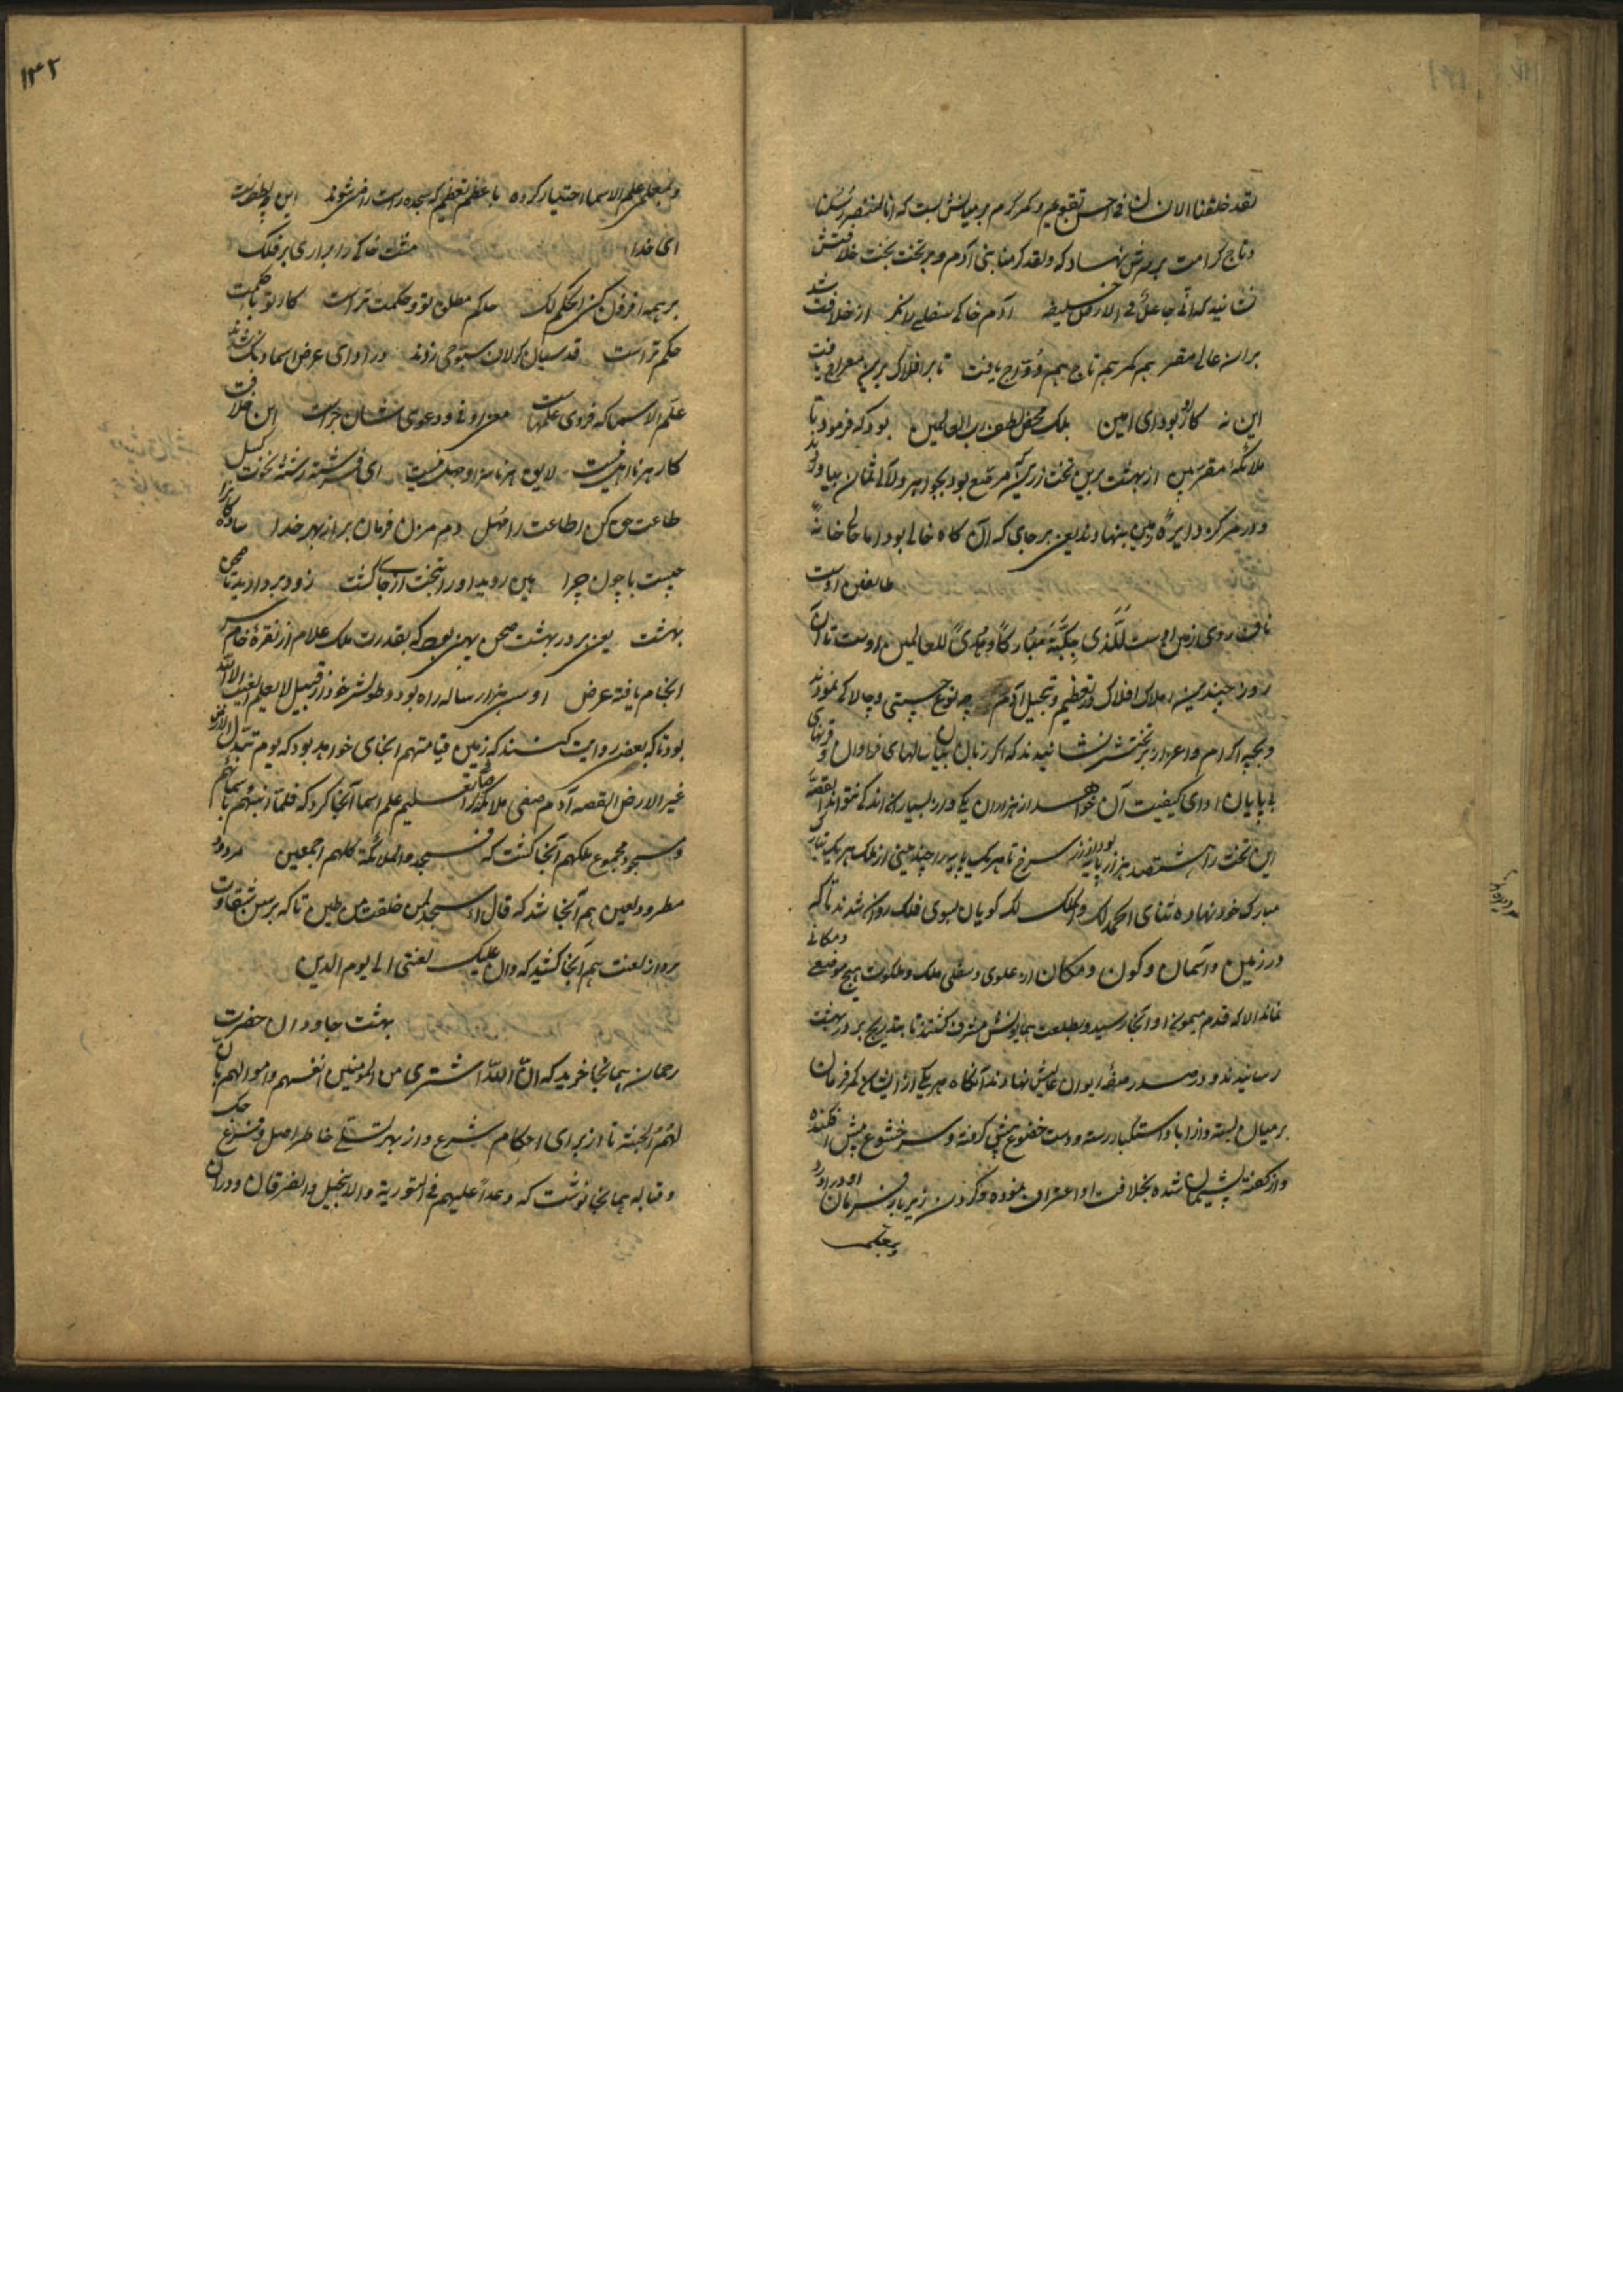 لقد خلقنا الانسان فی احسن تقویم و کمر کرم بر میانش بست که انا لننصر رسلنا
و تاج کرامت بر سرش نهاد که ولقد کرمنا بنی آدم و بر تخت بخت خلافتش
نشانید که انی جاعل فی الارض خلیفه آدم خاکی سفلی را نگر از خلافت شد
بران عالی مقر هم کمر هم تاج هم دواج یافت تا بر افلاک برین معراج یافت
این نه کار او بود ای امین بلکه محض لطف رب العالمین بود که فرمود تا
ملائکه مقربین از بهشت برین تخت زرین که مرصع بود بجواهر و لآلی ثمان بیاوردند
و در مرکز دایره زمین بنهادند یعنی بر جای که آن گاه خالی بود اما حالی خانه
طایفین اوست
ناف روی زمین اوست للذی ببکة مبارکا و هدی للعالمین اوست تا آن
روز چندین املاک افلاک در تعظیم و تبجیل آدم چه نوع چستی و چالاکی نمودند
و بچه اکرام و اعزاز بر تختش نشانیدند که اگر زبان بیان سالهای فراوان و قرنهای
بی پایان ادای کیفیت آن خواهد از هزاران یکی و از بسیاری اندکی نتواند القصه
این تخت را هشتصد هزار پایه بود از زر سرخ تا هر یک پایه را چندینی از ملک هر یک بتارک
مبارک خود نهاده ثنای الحمد لک والملک لک گویان بسوی فلک روان شدند تا که
در زمین و آسمان و کون و مکان از علوی و سفلی ملک و ملکوت هیچ موضعی و مکانی
نماند الا که قدم میمون او آنجا رسید و بطلعت همایونش مشرف گشتند تا بتدریج بر در بهشت
رسانیدند و در صدر صفه ایوان عالیش نهادند آنگاه هر یکی از ایشان کمر فرمان
بر میان بسته و از ابا و استکبار رسته و دست خضوع پیش گرفته و سر خشوع پیش افکنده
و از گفته پشیمان شده بخلافت او اعتراف نموده و گردن زیر بار فرمان او در آورد
و بمعلمی
۱۴۲
و بمعلمی علم الاسما اختیار کرده با عظم تعظیم که سجده است راضی شوند این چه لطف است
ای خدا مشت خاکی را بر آری بر فلک
بر همه افزون کنی الحکم لک حکم مطلق تو و حکمت تراست کار تو با حکمت
حکم تراست قدسیان کر لاف سبوحی زدند در ادای عرض اسما دنگ شدند
علم الاسما که فزوی علمهاست معزرونی و دعوی شان جراست این خلافت
کار هر نااهل نیست لایق هر ناسزا و جهل نیست ای فرشته رشته نخوت گسل
طاعت حق کن اطاعت را مهل دم مزن فرمان بر از بهر خدا ساده کار را
چیست با چون و چرا هین روید او را بتخت از جای گشت زود بردارید تا صحن
بهشت یعنی بر در بهشت صحن پهن بود که بقدرت ملک علام از نقره خام سر
انجام یافته عرض او سی هزار ساله راه بود و طولش خود از قبیل لا یعلم الغیب الا الله
بود تا که بعض روایت کنند که زمین قیامت هم آنجای خواهد بود که یوم تبدل الارض
غیر الارض القصه آدم صفی ملائکه را تعلیم علم اسما آنجا کرد که فلما انبئهم باسمائهم
و مسجود مجموع ملک هم آنجا گشت که فسجد الملائکة کلهم اجمعین مردود
مطرود لعین هم آنجا شد که قال أأسجد لمن خلقت من طین تا که بر سر شقاوت
برواز لعنت هم آنجا کشید که وان علیک لعنتی الی یوم الدین
بهشت جاودان حضرت
رحمان همانجا خرید که ان الله اشتری من المومنین انفسهم و اموالهم بان
لهم الجنة تا از برای احکام شرع و از بهر تسلی خاطر اصل و فرع
و قباله همانجا نوشت که وعدا علیهم فی التوریة والانجیل والفرقان و دران